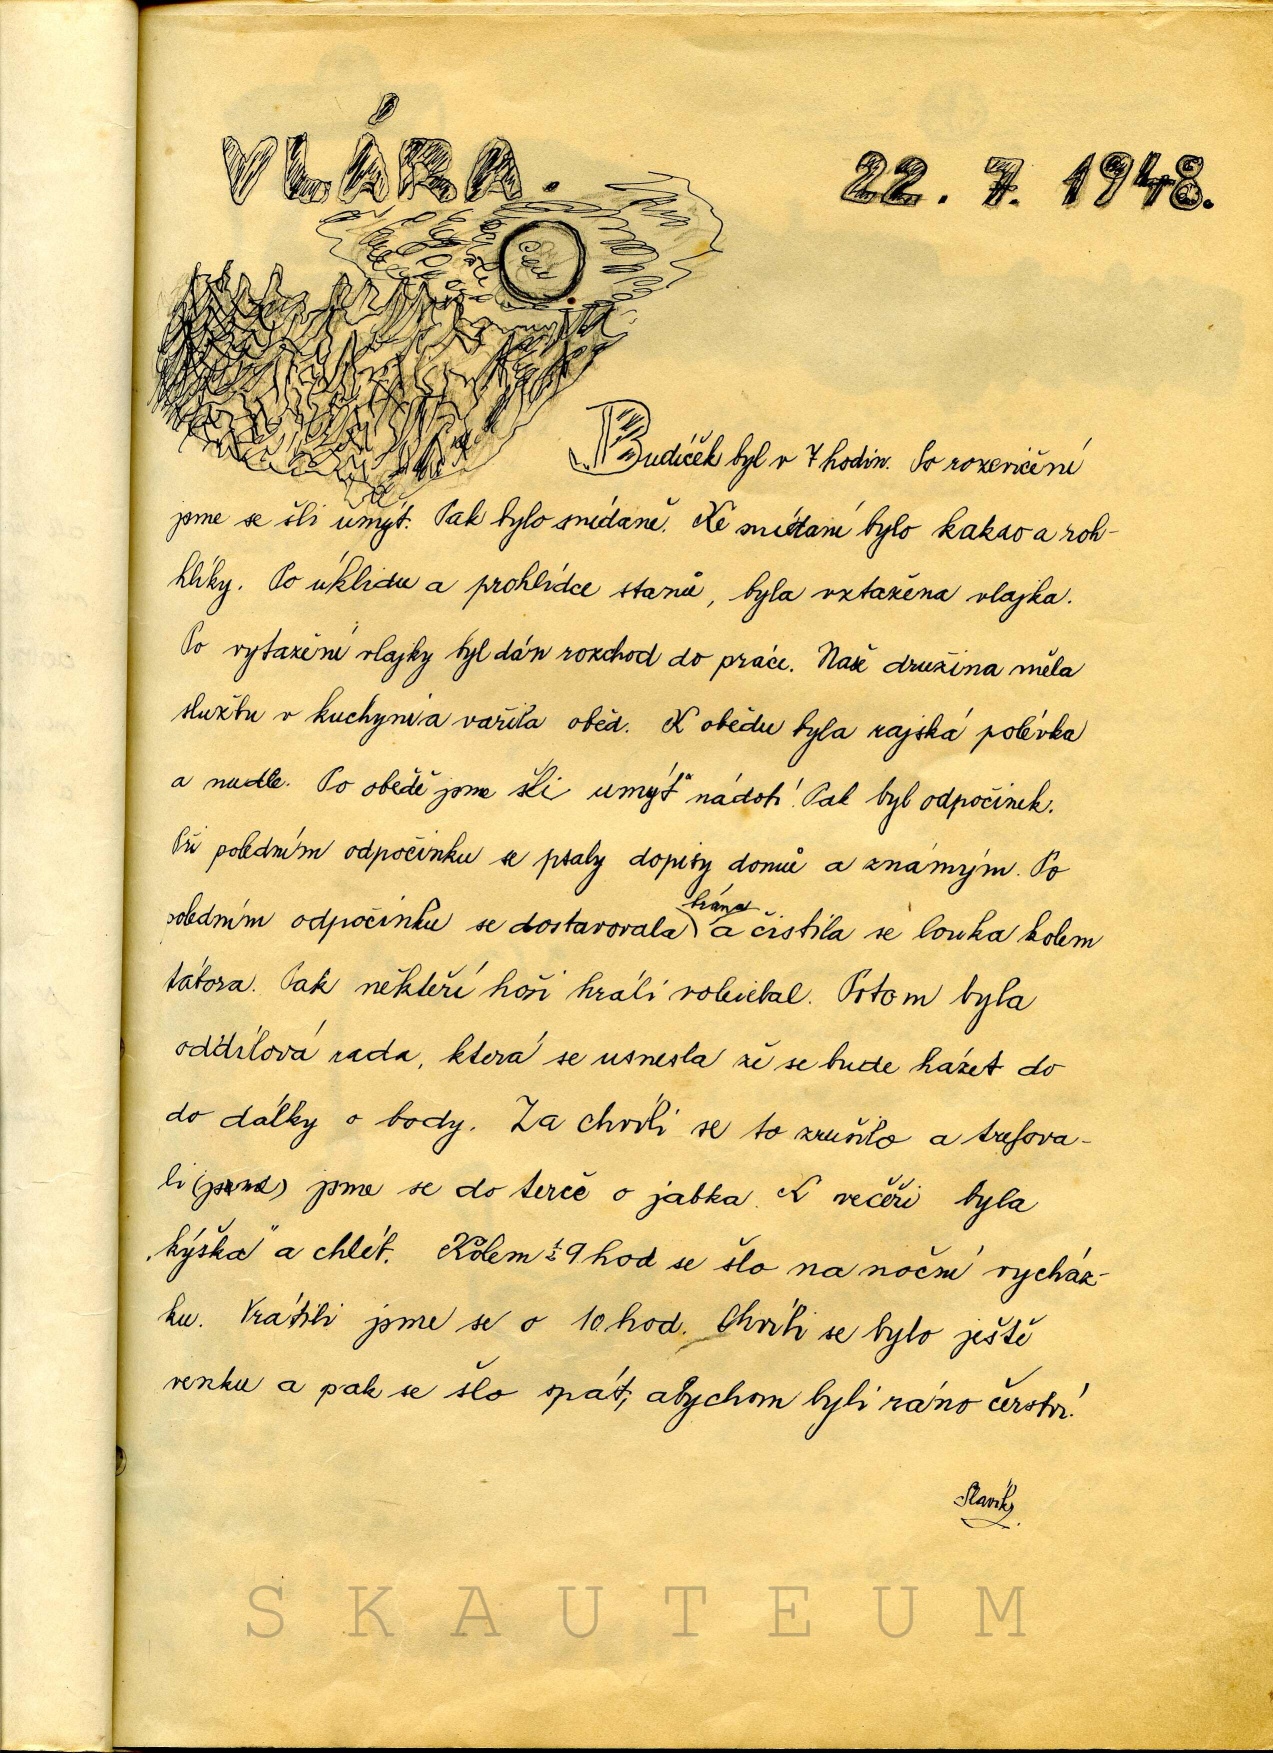 VLÁRA.
22. 7. 1948.
Budíček byl v 7 hodin. Po rozcvičení
jsme se šli umýt. Pak bylo snídaně. Ke snídaní bylo kakao a roh-
hlíky. Po úklidu a prohlídce stanů, byla vztažena vlajka.
Po vytažení vlajky byl dán rozchod do práce. Naše družina měla
službu v kuchyni a vařila oběd. K obědu byla rajská polévka
a nudle. Po obědě jsme šli umýt nádobí. Pak byl odpočinek.
Při poledním odpočinku se psaly dopisy domů a známým. Po
poledním odpočinku se dostavovala brána a čistila se louka kolem
tábora. Pak někteří hoši hráli voleibal. Potom byla
oddílová rada, která se usnesla že se bude házet do
do dálky o body. Za chvíli se to zrušilo a trefova-
li (jsme) jsme se do terče o jabka. K večeři byla
„kýška" a chléb. Kolem ½9 hod se šlo na noční vycház-
ku. Vrátili jsme se o 10 hod. Chvíli se bylo ještě
venku a pak se šlo spát, abychom byli ráno čerství.
Slavík
SKAUTEUM